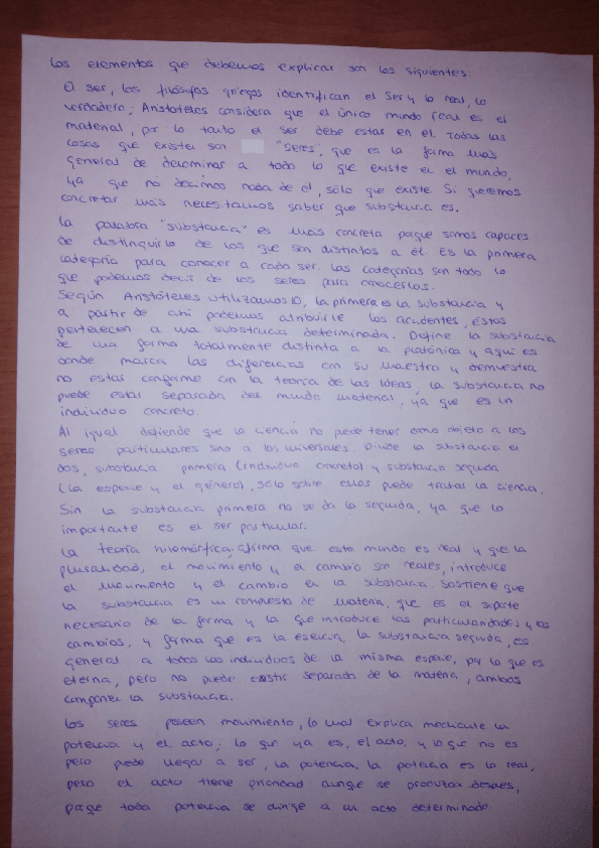 Los elementos que debemos explicar son los siguientes:
El ser, los filósofos griegos identifican el ser y lo real, lo
verdadero; Aristóteles considera que el único mundo real es el
material, por lo tanto el ser debe estar en él. Todas las
cosas que existen son "seres", que es la forma más
general de denominar a todo lo que existe en el mundo,
ya que no decimos nada de él, sólo que existe. Si queremos
concretar más necesitamos saber que substancia es.
La palabra "substancia" es más concreta porque somos capaces
de distinguirlo de los que son distintos a él. Es la primera
categoría para conocer a cada ser. Las categorías son todo lo
que podemos decir de los seres para conocerlos.
Según Aristóteles utilizamos 10, la primera es la substancia y
a partir de ahí podemos atribuirle los accidentes, éstos
pertenecen a una substancia determinada. Define la substancia
de una forma totalmente distinta a la platónica y aquí es
donde marca las diferencias con su maestro y demuestra
no estar conforme con la teoría de las Ideas, la substancia no
puede estar separada del mundo material, ya que es un
individuo concreto.
Al igual defiende que la ciencia no puede tener como objeto a los
seres particulares sino a los universales. Divide la substancia en
dos, substancia primera (individuo concreto) y substancia segunda
(la especie y el género), sólo sobre ellos puede tratar la ciencia.
Sin la substancia primera no se da la segunda, ya que lo
importante es el ser particular.
La teoría hilemórfica, afirma que este mundo es real y que la
pluralidad, el movimiento y el cambio son reales, introduce
el movimiento y el cambio en la substancia. Sostiene que
la substancia es un compuesto de materia, que es el soporte
necesario de la forma y la que introduce las particularidades y los
cambios, y forma que es la esencia, la substancia segunda, es
general a todos los individuos de la misma especie, por lo que es
eterna, pero no puede existir separada de la materia, ambos
componen la substancia.
Los seres poseen movimiento, lo cual explica mediante la
potencia y el acto; lo que ya es, el acto, y lo que no es
pero puede llegar a ser, la potencia. La potencia es lo real,
pero el acto tiene prioridad aunque se produzca después,
porque toda potencia se dirige a un acto determinado.